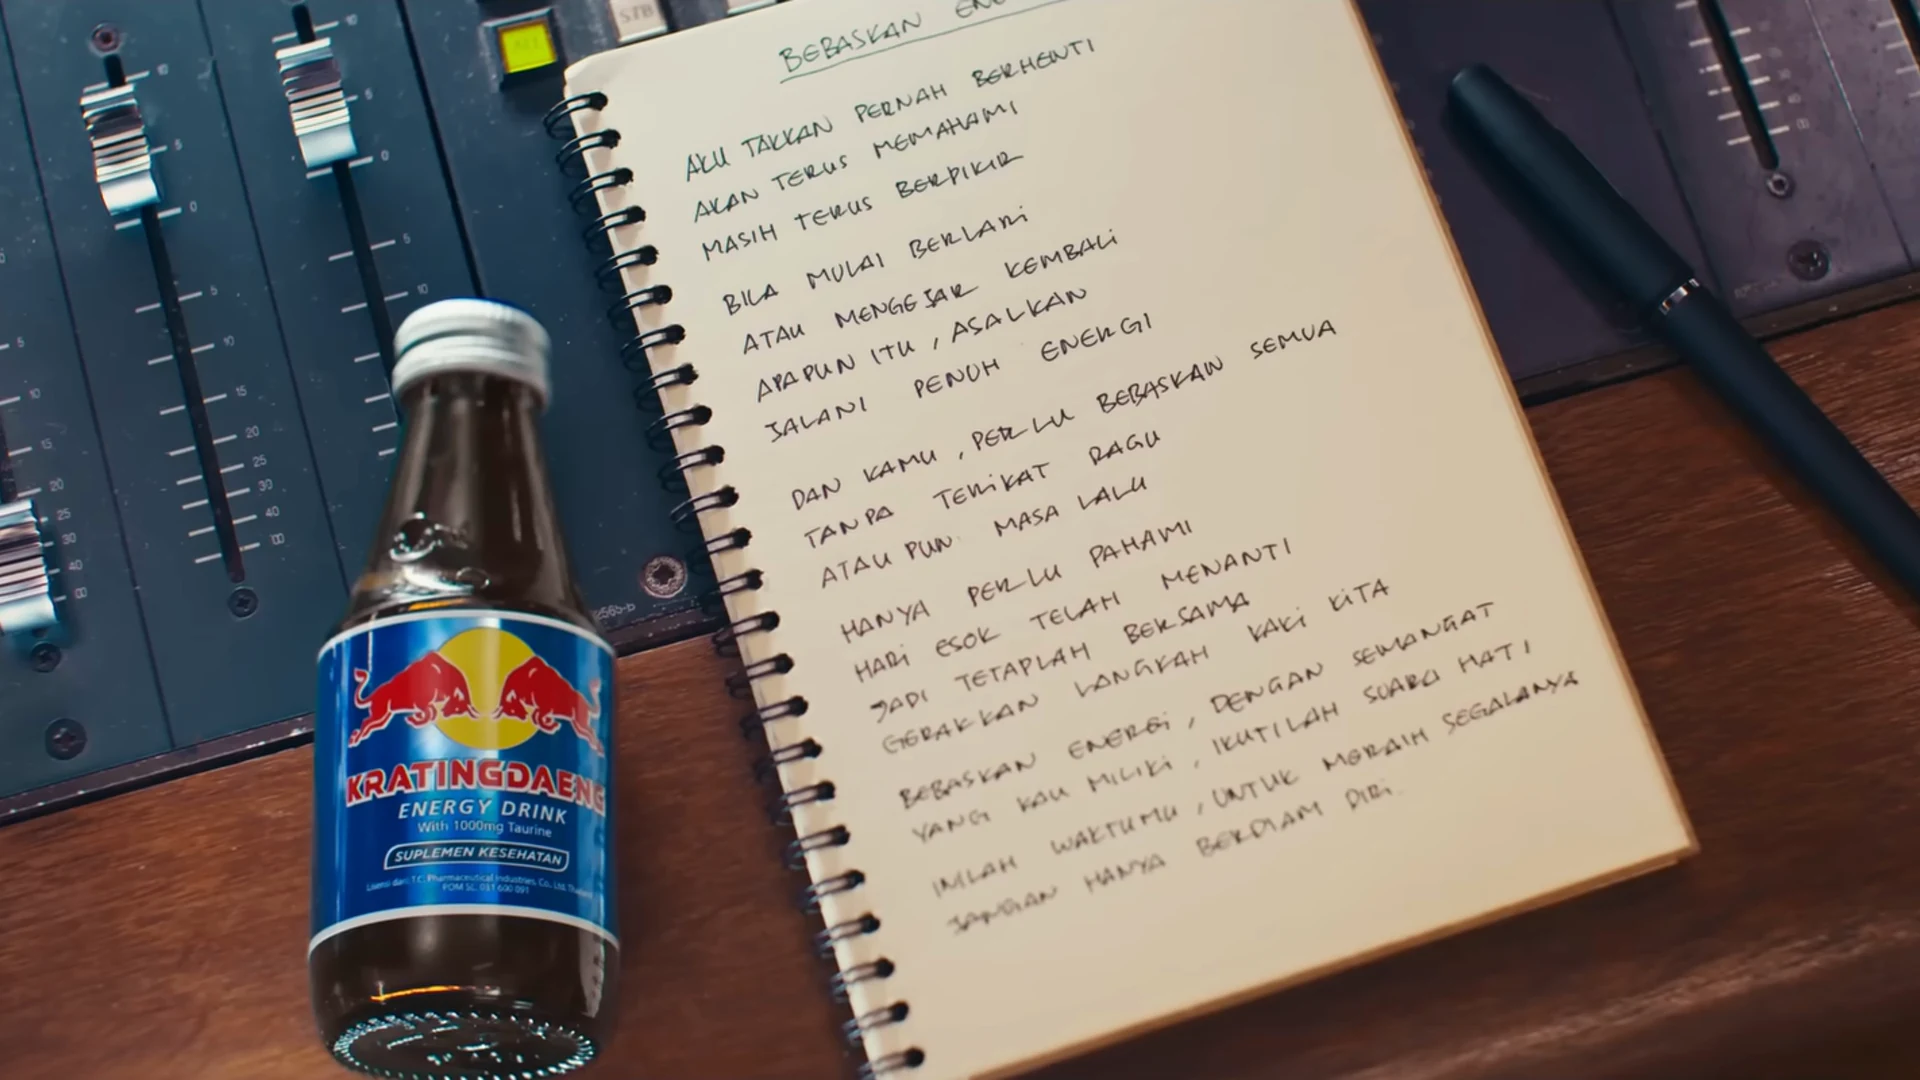 BEBASKAN
AKU TAKKAN PERNAH BERHENTI
AKAN TERUS MEMAHAMI
MASIH TERUS BERPIKIR
BILA MULAI BERLARI
ATAU MENGEJAR KEMBALI
APAPUN ITU, ASALKAN
JALANI PENUH ENERGI
DAN KAMU, PERLU BEBASKAN SEMUA
TANPA TERIKAT RAGU
ATAU PUN MASA LALU
HANYA PERLU PAHAMI
HARI ESOK TELAH MENANTI
JADI TETAPLAH BERSAMA
GERAKKAN LANGKAH KAKI KITA
BEBASKAN ENERGI, DENGAN SEMANGAT
YANG KAU MILIKI, IKUTILAH SUARA HATI,
INILAH WAKTUMU, UNTUK MERAIH SEGALANYA
JANGAN HANYA BERDIAM DIRI.
KRATINGDAENG
ENERGY DRINK
With 1000mg Taurine
SUPLEMEN KESEHATAN
Lisensi dari: T.C. Pharmaceutical Industries, Co., Ltd.
POM SL. 031 600 091
STB
10
5
0
5
10
15
20
25
30
40
00